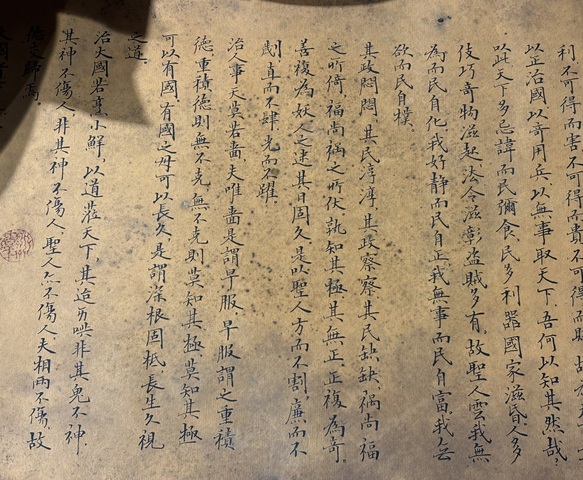 利不可得而害不可得而貴不可得而賤故
以正治國以奇用兵以無事取天下.吾何以知其然哉.
以此天下多忌諱而民彌貧民多利器國家滋昏.人多
伎巧奇物滋起法令滋彰盜賊多有.故聖人雲我無
為而民自化我好靜而民自正我無事而民自富.我无
欲而民自樸.
其政悶悶.其民淳淳.其政察察其民缺缺.禍尚福
之所倚.福尚禍之所伏孰知其極其無正.正複為奇.
善複為妖人之迷其日固久是以聖人方而不割.廉而不
劌.直而不肆光而不躍.
治人事天莫若嗇夫唯嗇是謂早服.早服謂之重積
德.重積德則無不克無不克則莫知其極.莫知其極
可以有國有國之母可以長久.是謂深根固柢.長生久視
之道.
治大國若烹小鮮.以道蒞天下.其非其鬼不神.
其神不傷人.非其神不傷人.聖人亦不傷人夫相兩不傷.故
德交歸焉.
大國